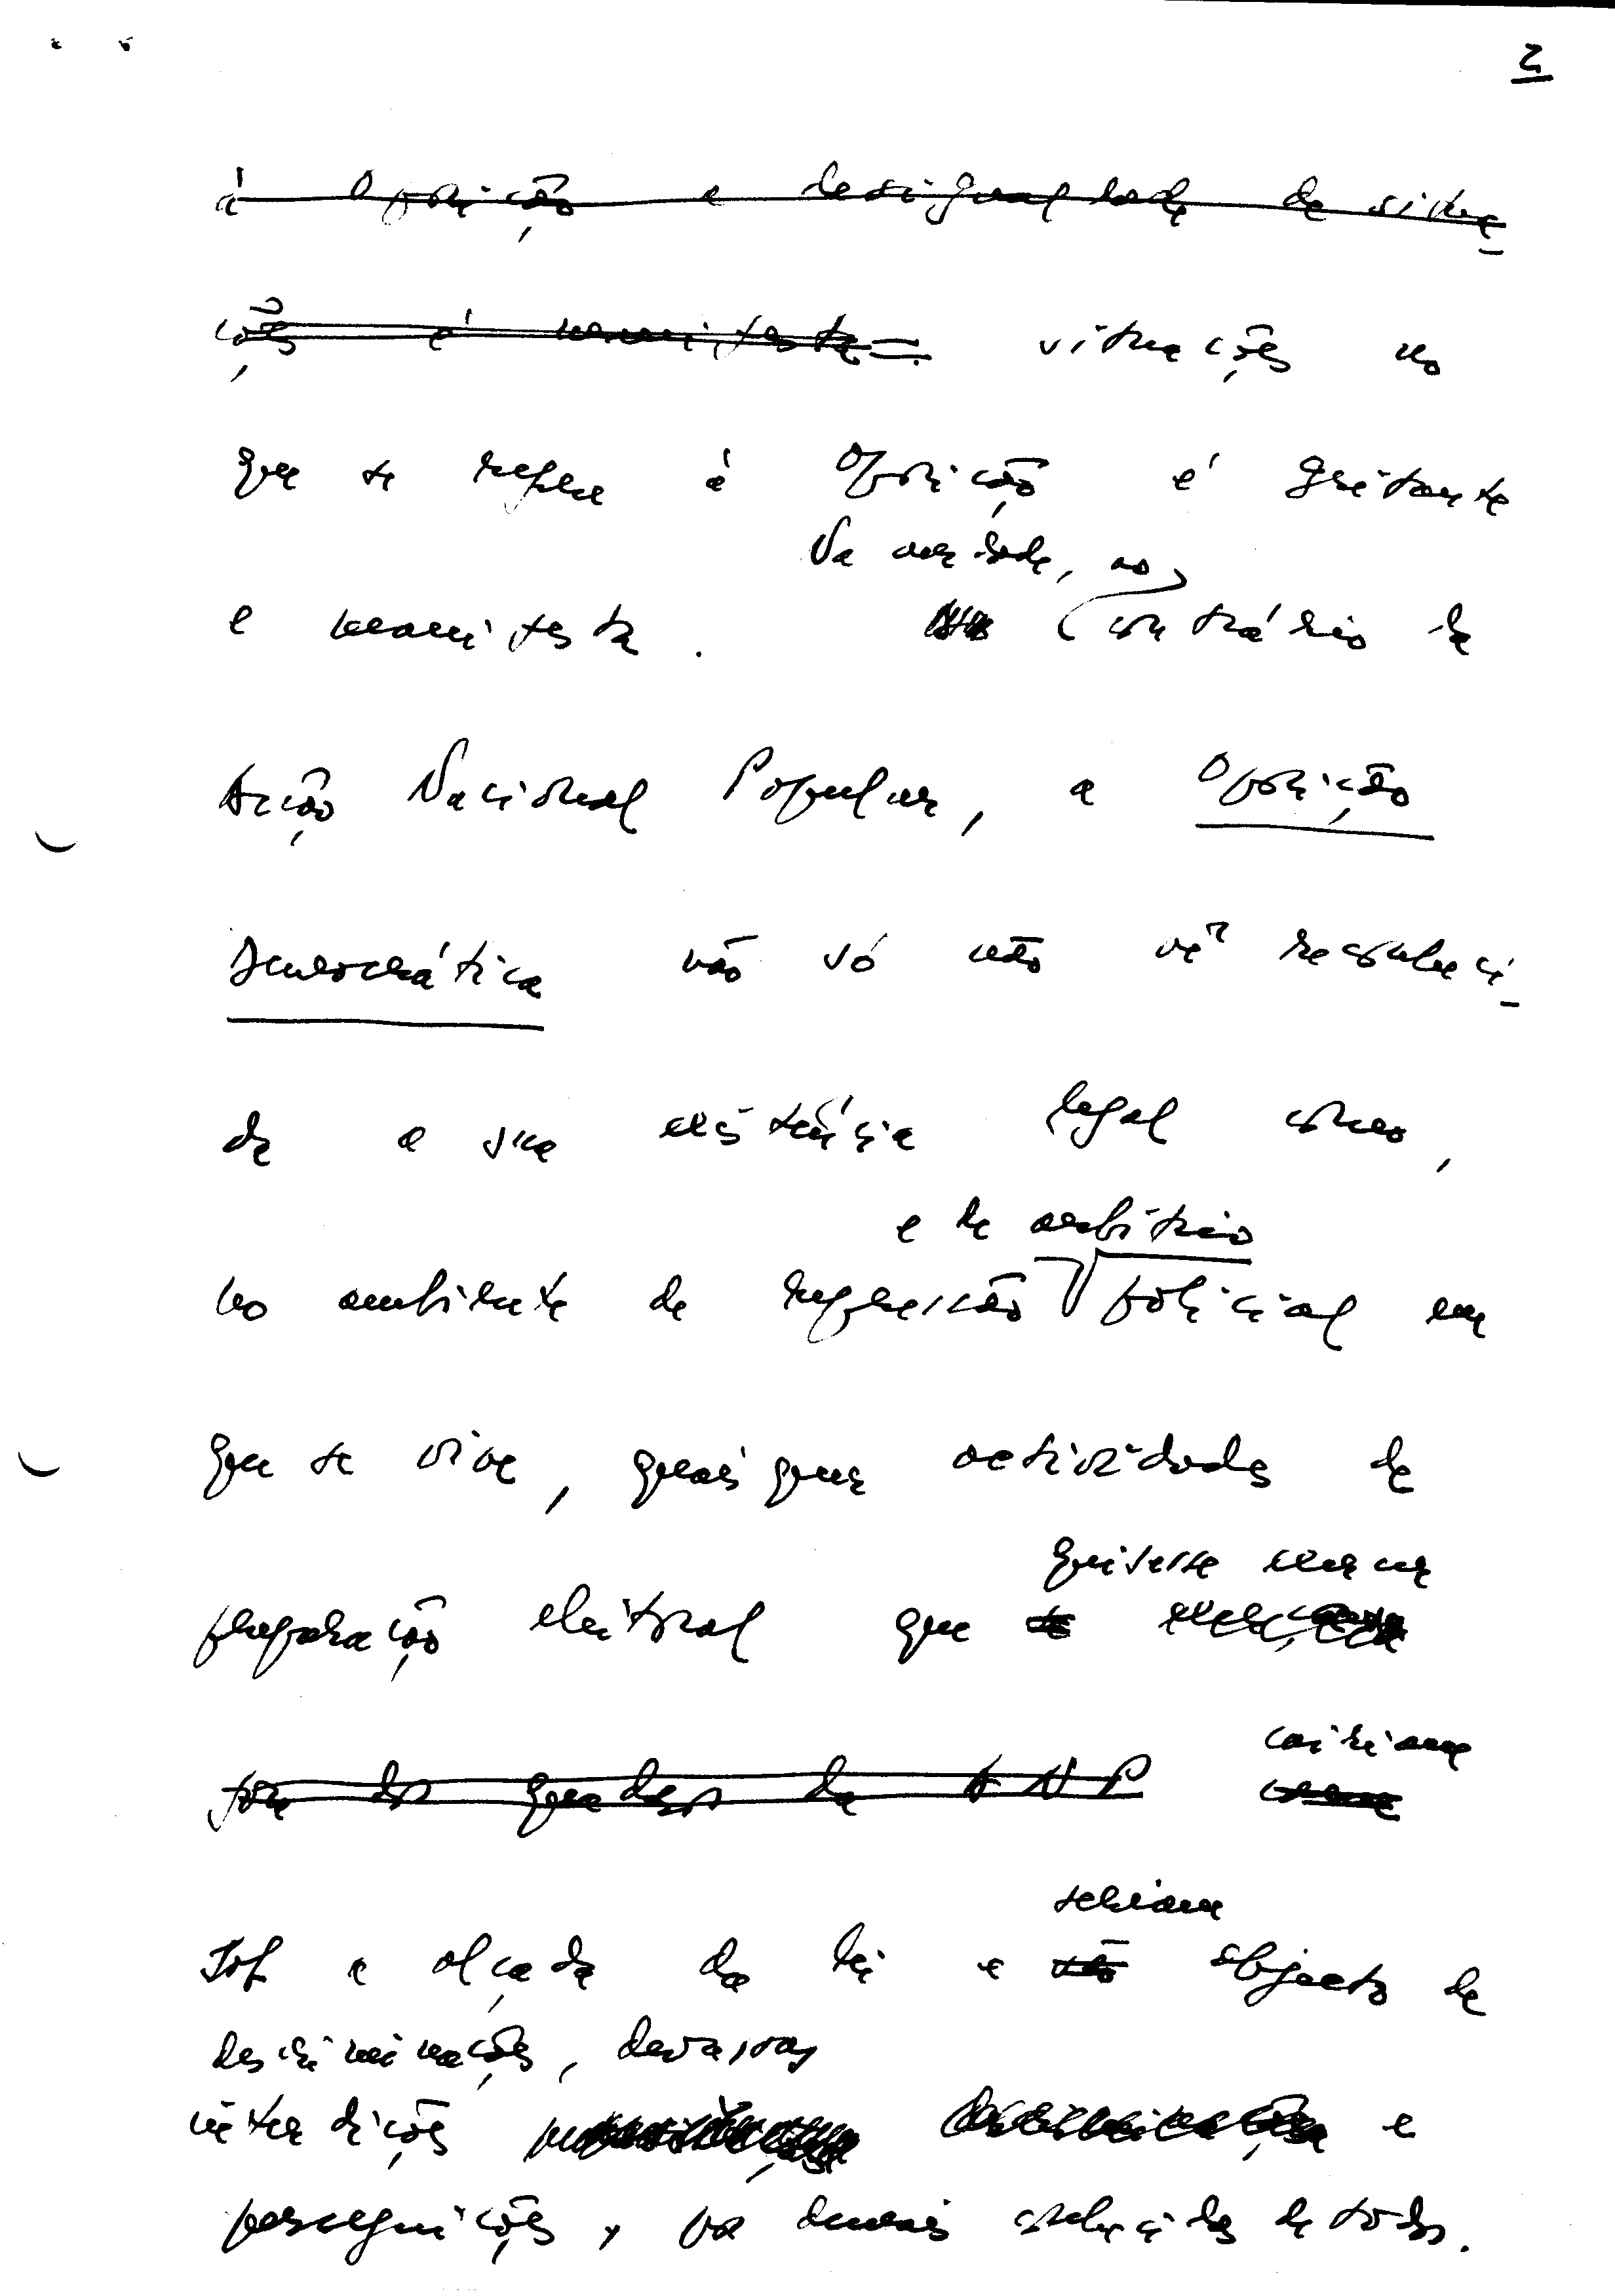 2
à Oposição a desigualdade de situa-
ções é manifesta. situações no
que se refere à Oposição é gritante
Na verdade, ao
e manifesta. contrário da
Acção Nacional Popular, a Oposição
Democrática não só não vê reconheci-
da a sua existência legal como,
e de arbítrio
no ambiente de repressão policial em
que se vive, quaisquer actividades de
quisesse exercer
preparação eleitoral que se
fora dos quadros da ANP
cairiam
teriam
sob a alçada da lei e são objecto de
descriminações, devassas
interdições e
perseguições, por demais conhecidas de todos.